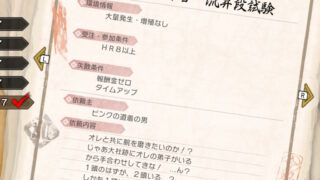 流昇段試験
環境情報
大量発生・増殖なし
受注・参加条件
ＨＲ８以上
失敗条件
報酬金ゼロ
タイムアップ
依頼主
ピンクの道着の男
依頼内容
オレと共に腕を磨きたいのか！？
じゃあ大社跡にオレの弟子がいる
から手合わせしてきな！…ん？
１頭のはずが、２頭いる？
7
L
R